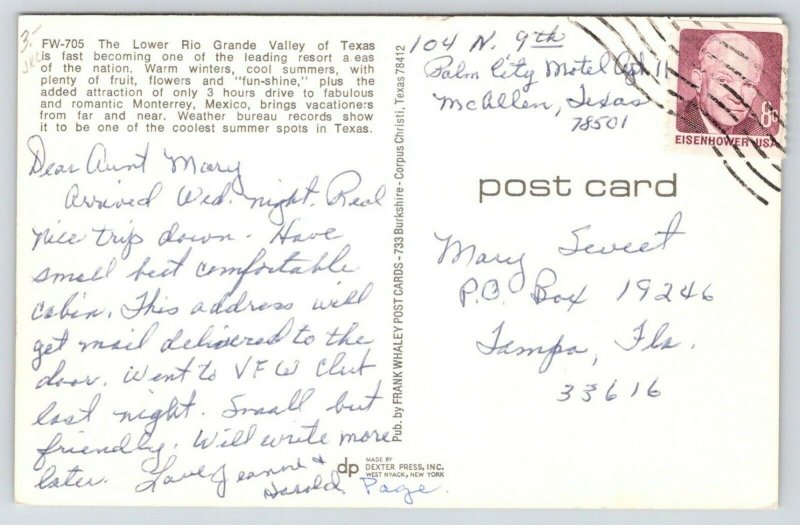 3-
FW-705 The Lower Rio Grande Valley of Texas
is fast becoming one of the leading resort a eas
of the nation. Warm winters, cool summers, with
plenty of fruit, flowers and "fun-shine," plus the
added attraction of only 3 hours drive to fabulous
and romantic Monterrey, Mexico, brings vacationers
from far and near. Weather bureau records show
it to be one of the coolest summer spots in Texas.
Dear Aunt Mary
Arrived Wed. night. Real
nice trip down. Have
small but comfortable
cabin. This address will
get mail delivered to the
door. Went to VFW Club
last night. Small but
friendly. Will write more
later. Love Jeanne &
Harold Page.
Pub. by FRANK WHALEY POST CARDS - 733 Burkshire - Corpus Christi, Texas 78412
dp
MADE BY
DEXTER PRESS, INC.
WEST NYACK, NEW YORK
104 N. 9th
Palm City Motel Apt. 11
McAllen, Texas
78501
6c
EISENHOWER·USA
post card
Mary Sweet
P.O. Box 19246
Tampa, Fla.
33616